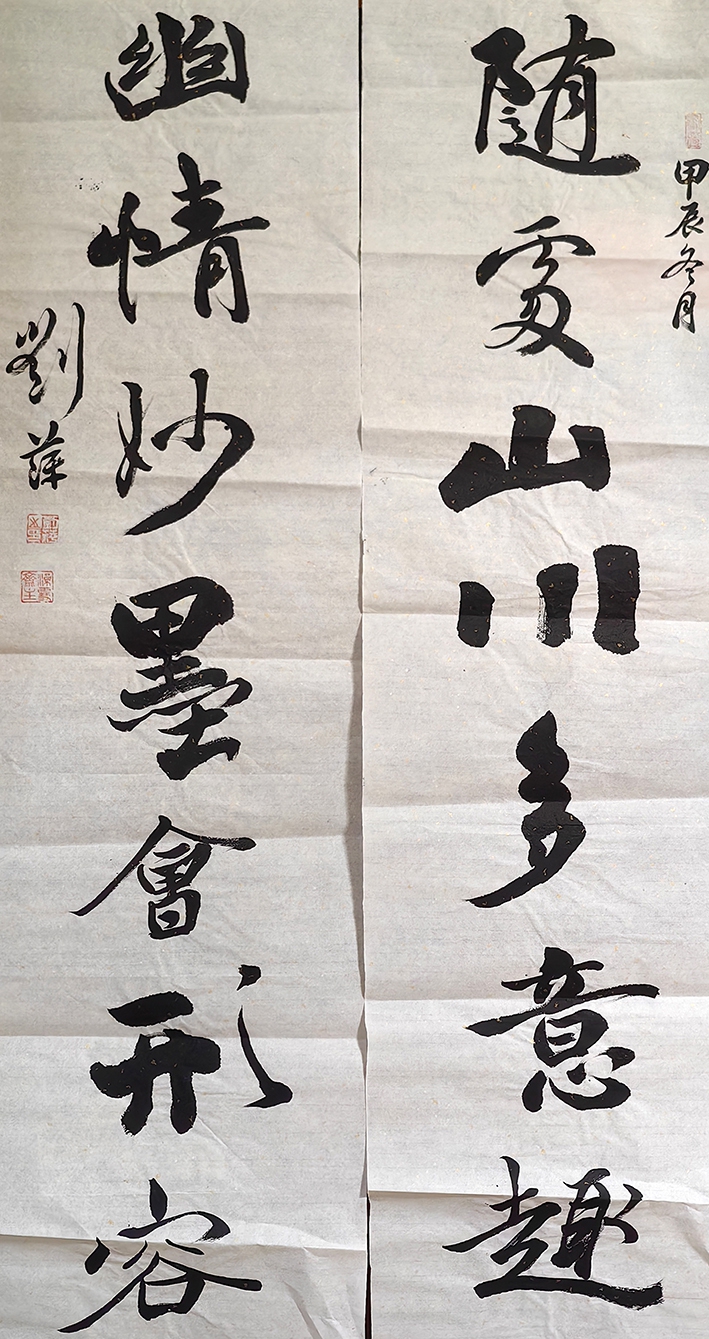 甲辰冬月
随處山川多意趣
幽情妙墨會形容
劉萍